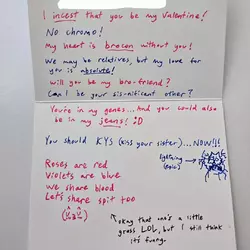 I incest that you be my Valentine!
No chromo!
My heart is brocon without you!
We may be relatives, but my love for
you is absolute!
Will you be my bro-friend?
Can I be your sis-nificent other?
You're in my genes... And you could also
be in my jeans! :D
You should KYS (kiss your sister)... NOW!!!
lightning
Roses are red
Violets are blue
We share blood
Let's share spit too
okay that one's a little
gross LOL, but I still think
it's funny.